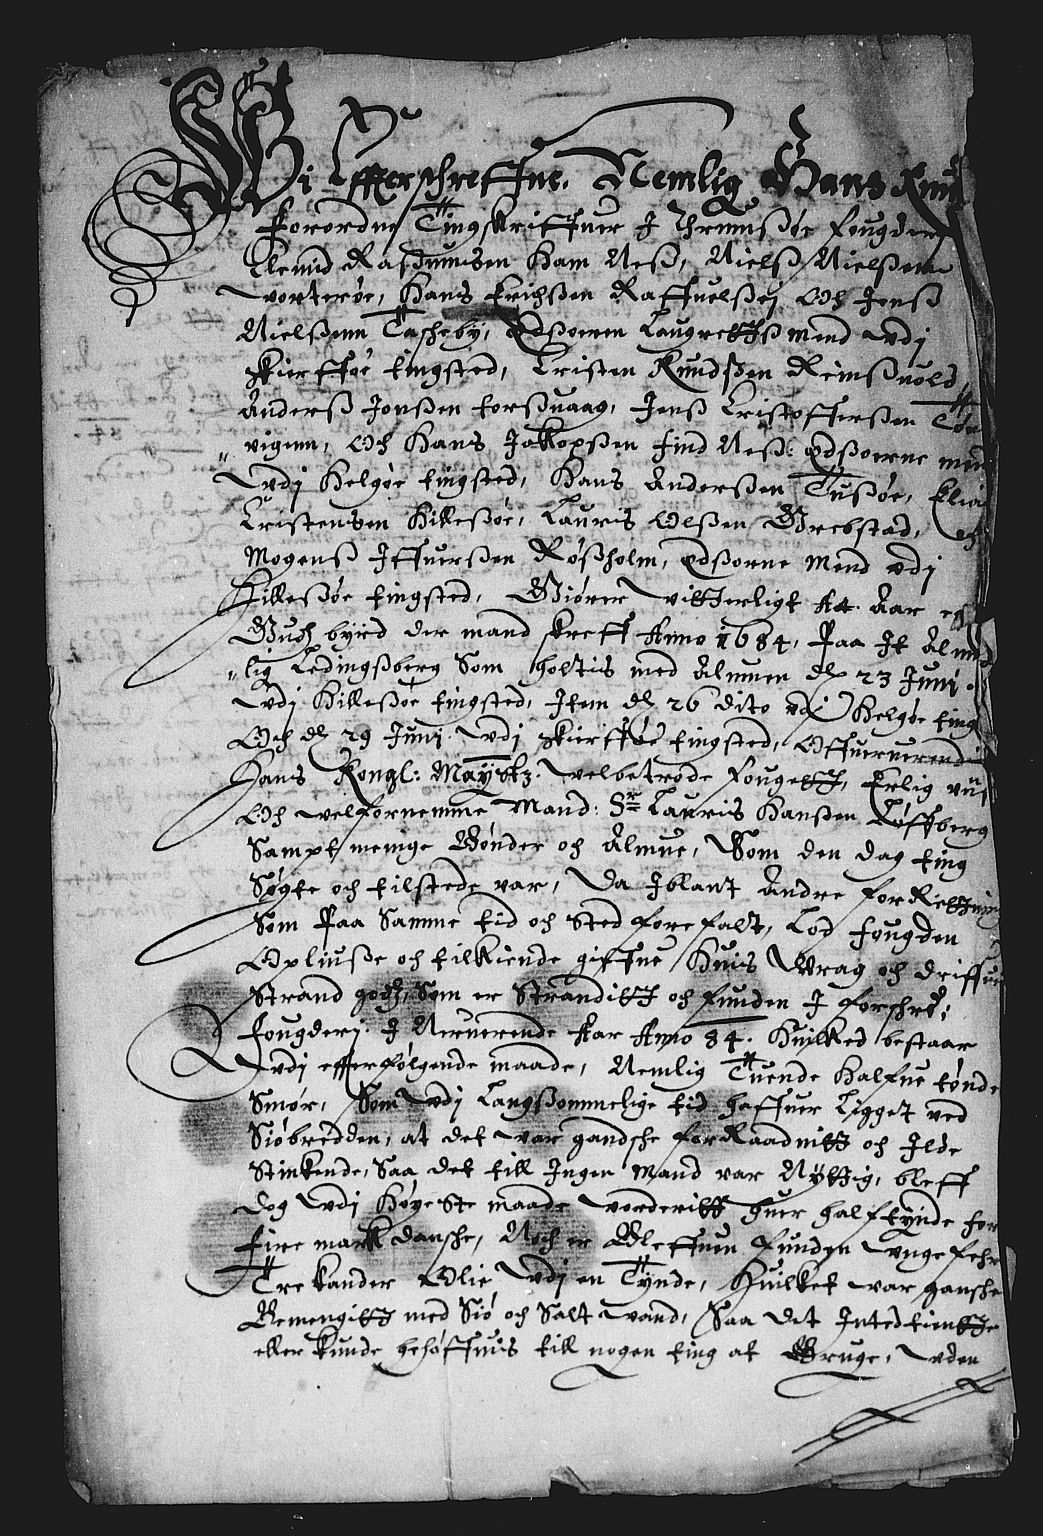 Wi Effterschrefne, Nemlig Hans Knu
forordnet Tingskriffuer I Thrumbsøe fougderj
Clemid Rasmusen Ham Neß, Nielß Nielßenn
vorterøe, Hans Erichsen Raffuelßej Och Jenß
Nielßenn Tascheby, Edsoeren Laugrettißmend udj
Skierfføe tingsted, Cristen Knudßen Reinßuold,
Anderß Jonßen forßuaag, Jenß Cristofferßen Tøn
vigenn, Och Hans Jakopßen find Neß: Edsoerne mend
udj Helgøe tingsted, Hans Anderßen Tußøe, Elia
Cristensen Hilleßøe, Lauris Olßen Grebstad,
Mogenß Iffuerßen Røßholm, Edsorne mend udj
Hilleßøe tingsted, Giører Vitterligt At Aar effter
Gudz byrd der mand skreff Anno 1684, Paa It Almind
"lig Ledingßberg Som holtis med Almuen dh 23 Junij.
udj Hilleßøe tingsted, Item dh 26 dito udj Helgøe ting
Och dh 29 Junij. udj Skierfføe tingsted, Offueruerende
Hans Kongl: Maystz. velbetrode fougett, Erlig
Och velfornemme Mand: Sr Lauris Hanßen Løffberg
Sampt menige Bønder och Almue, Som den dag ting
Søgte och tilstede var, Da Iblant Andre forRetning
Som Paa Samme tid och Sted forefalt, Lod fougden
Opliuße och tilkiende giffue Huis Vrag och driffue
Strand godz, Som er Strandit och funden I forschr:
fougderj. I Neruerende Aar Anno 84. Huilked bestaar
udj efterfølgende maade, Nemlig Tuende Halfue tønde
Smør, Som udj Langßommelige tid haffuer Ligget ved
Siøbredden, at det var gandsche forRaadnitt och Ilde
Stinkende, Saa det till Ingen Mand var Nyttig, bleff
dog udj Høyeste maade vorderitt huer halftynde for
fire mark danske, Noch er Bleffuen funden Unge fehr
Tre kander Olie udj en Tynde, Huilket var ganske
Bemengitt med Siø och Salt vand, Saa det Inted tiente
eller kunde behøffuis till nogen ting at Bruge, uden